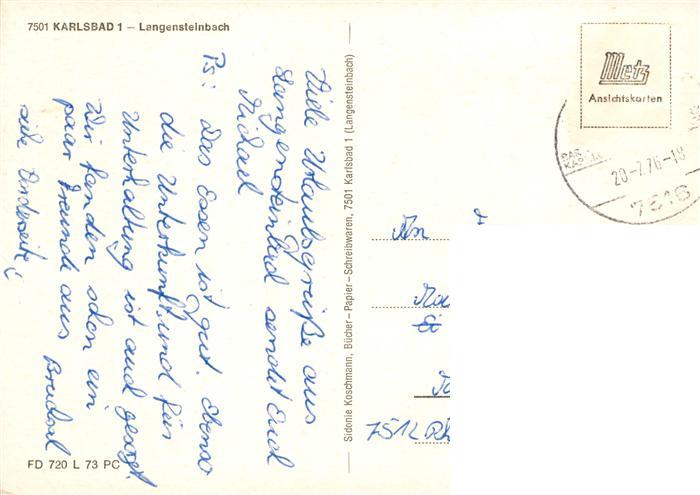 7501 KARLSBAD 1 – Langensteinbach
Viele Urlaubsgrüße aus
Langensteinbad sendet Euch
Michael
Ps: Das Essen ist gut. Ebenso
die Unterkunft und für
Unterhaltung ist auch gesorgt.
Wir fanden schon ein
paar Freunde aus Bruchsal
siehe Anderseite!
FD 720 L 73 PC
Sidonie Koschmann, Bücher–Papier–Schreibwaren, 7501 Karlsbad 1 (Langensteinbach)
Metz
Ansichtskarten
20-7.76-18
7516
An
Ei
7512 Rh